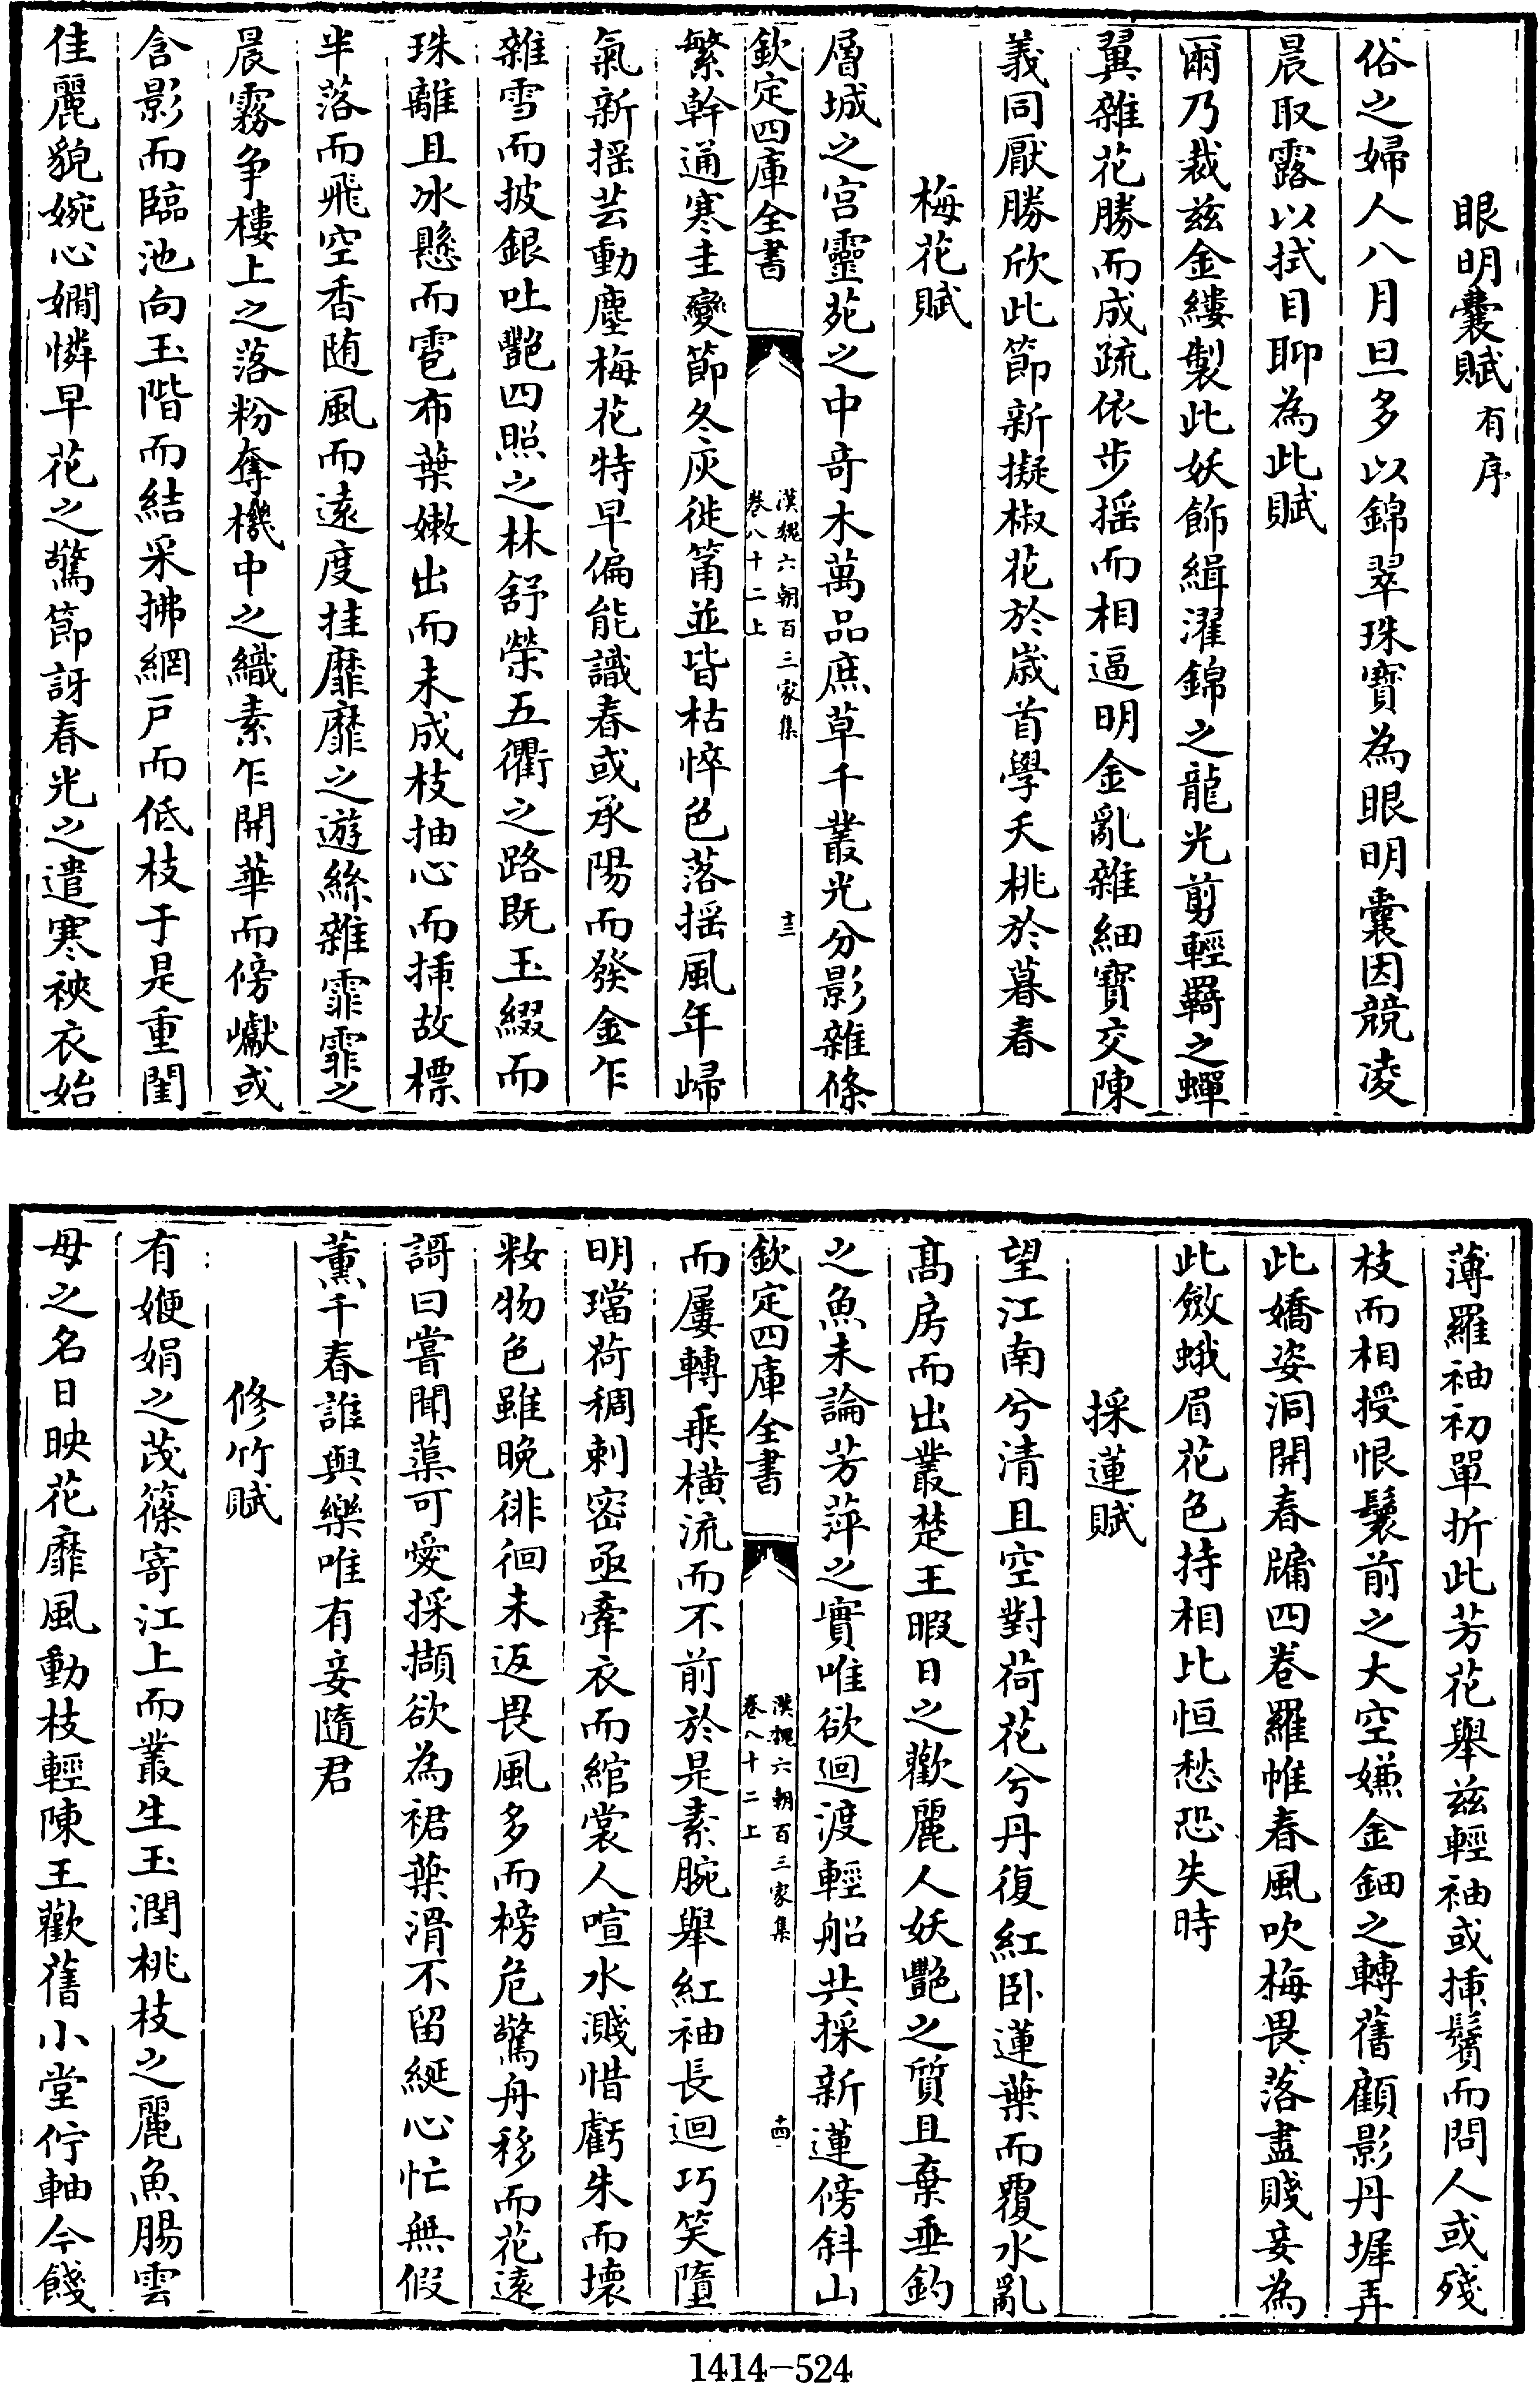 眼明囊賦有序
俗之婦人八月旦多以錦翠珠寶為眼明囊因競凌
晨取露以拭目聊為此賦
爾乃裁兹金縷製此妖飾緝濯錦之龍光剪輕羇之蟬
翼雜花勝而成疏依步揺而相逼明金亂雜細寳交陳
義同厭勝欣此節新擬椒花於嵗首學夭桃於暮春
梅花賦
層城之宫靈苑之中竒木萬品庶草千叢光分影雜條
欽定四庫全書
漢魏六朝百三家集
卷八十二上
十三
繁幹通寒圭變節冬灰徙筩並皆枯悴色落揺風年歸
氣新揺芸動塵梅花特早偏能識春或承陽而發金乍
雜雪而披銀吐艷四照之林舒榮五衢之路既玉綴而
珠離且冰懸而雹布葉嫩出而未成枝抽心而挿故標
半落而飛空香随風而遠度挂靡靡之遊絲雜霏霏之
晨霧争樓上之落粉奪機中之織素乍開華而傍巘或
含影而臨池向玉階而結采拂網戸而低枝于是重閨
佳麗貌婉心嫺憐早花之驚節訝春光之遣寒裌衣始
薄羅袖初單折此芳花舉兹輕袖或挿鬢而問人或殘
枝而相授恨鬟前之大空嫌金鈿之轉舊顧影丹墀弄
此嬌姿洞開春牖四卷羅帷春風吹梅畏落盡賤妾為
此斂蛾眉花色持相比恒愁恐失時
採蓮賦
望江南兮清且空對荷花兮丹復紅卧蓮葉而覆水亂
髙房而出叢楚王暇日之歡麗人妖艷之質且棄垂釣
之魚未論芳萍之實唯欲迴渡輕船共採新蓮傍斜山
欽定四庫全書
漢魏六朝百三家集
卷八十二上
十四
而屢轉乗横流而不前於是素腕舉紅袖長迴巧笑墮
明璫荷稠刺密亟牽衣而綰裳人喧水濺惜虧朱而壊
粧物色雖晚徘徊未返畏風多而榜危驚舟移而花逺
謌曰嘗聞蕖可愛採擷欲為裙葉滑不留綖心忙無假
薰千春誰與樂唯有妾隨君
修竹賦
有㛹娟之茂篠寄江上而叢生玉潤桃枝之麗魚腸雲
母之名日映花靡風動枝輕陳王歡舊小堂佇軸今餞
1414-524